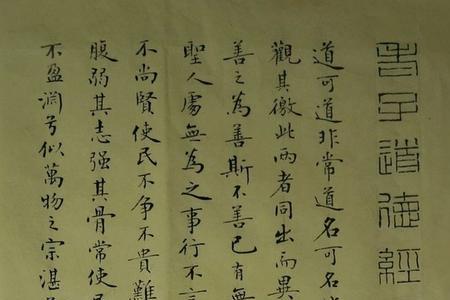 老子道德經
道可道非常道名可名
觀其徼此兩者同出而異
善之為善斯不善已有無
聖人處無為之事行不言
不尚賢使民不争不貴難
腹弱其志强其骨常使民
不盈淵兮似萬物之宗湛